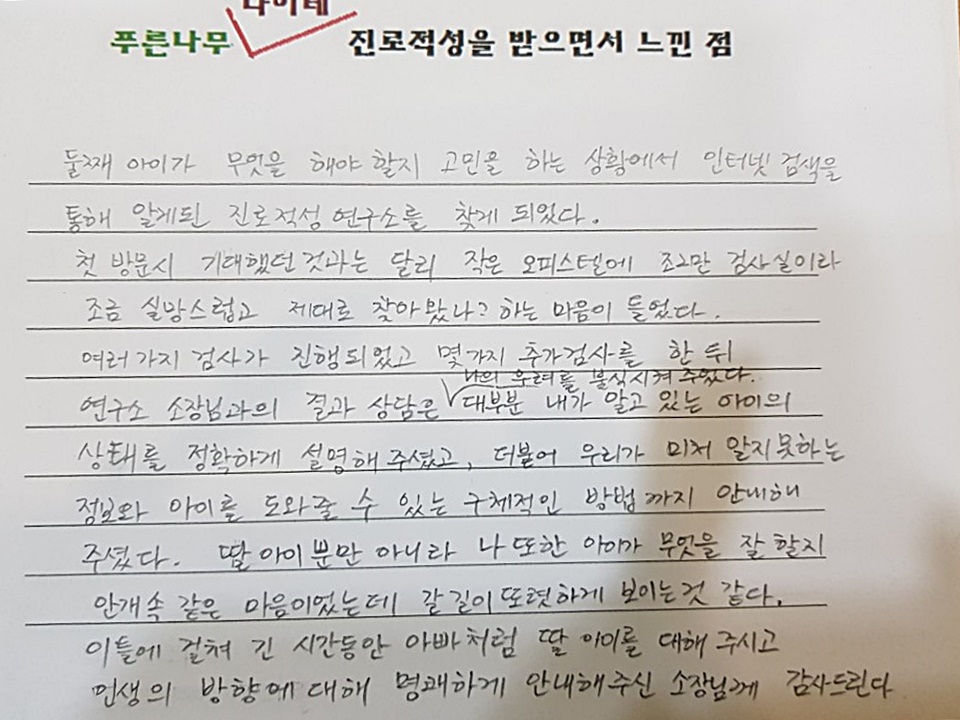 다이테
푸른나무 진로적성을 받으면서 느낀 점
둘째 아이가 무엇을 해야 할지 고민을 하는 상황에서 인터넷 검색을
통해 알게된 진로적성 연구소를 찾게 되었다.
첫 방문시 기대했던 것과는 달리 작은 오피스텔에 조그만 검사실이라
조금 실망스럽고 제대로 찾아왔나? 하는 마음이 들었다.
여러가지 검사가 진행되었고 몇가지 추가검사를 한 뒤
나의 우려를 불식시켜 주었다.
연구소 소장님과의 결과 상담은 대부분 내가 알고 있는 아이의
상태를 정확하게 설명해 주셨고, 더불어 우리가 미처 알지못하는
정보와 아이를 도와줄 수 있는 구체적인 방법까지 안내해
주셨다. 딸아이뿐만 아니라 나 또한 아이가 무엇을 잘 할지
안개속 같은 마음이었는데 갈길이 또렷하게 보이는것 같다.
이틀에 걸쳐 긴 시간동안 아빠처럼 딸 아이를 대해 주시고
인생의 방향에 대해 명쾌하게 안내해주신 소장님께 감사드린다